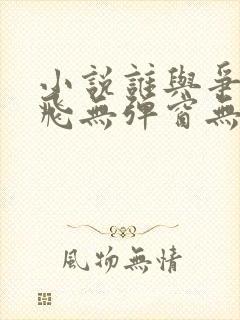 小説誰與爭
飛無彈窗無
風物無情